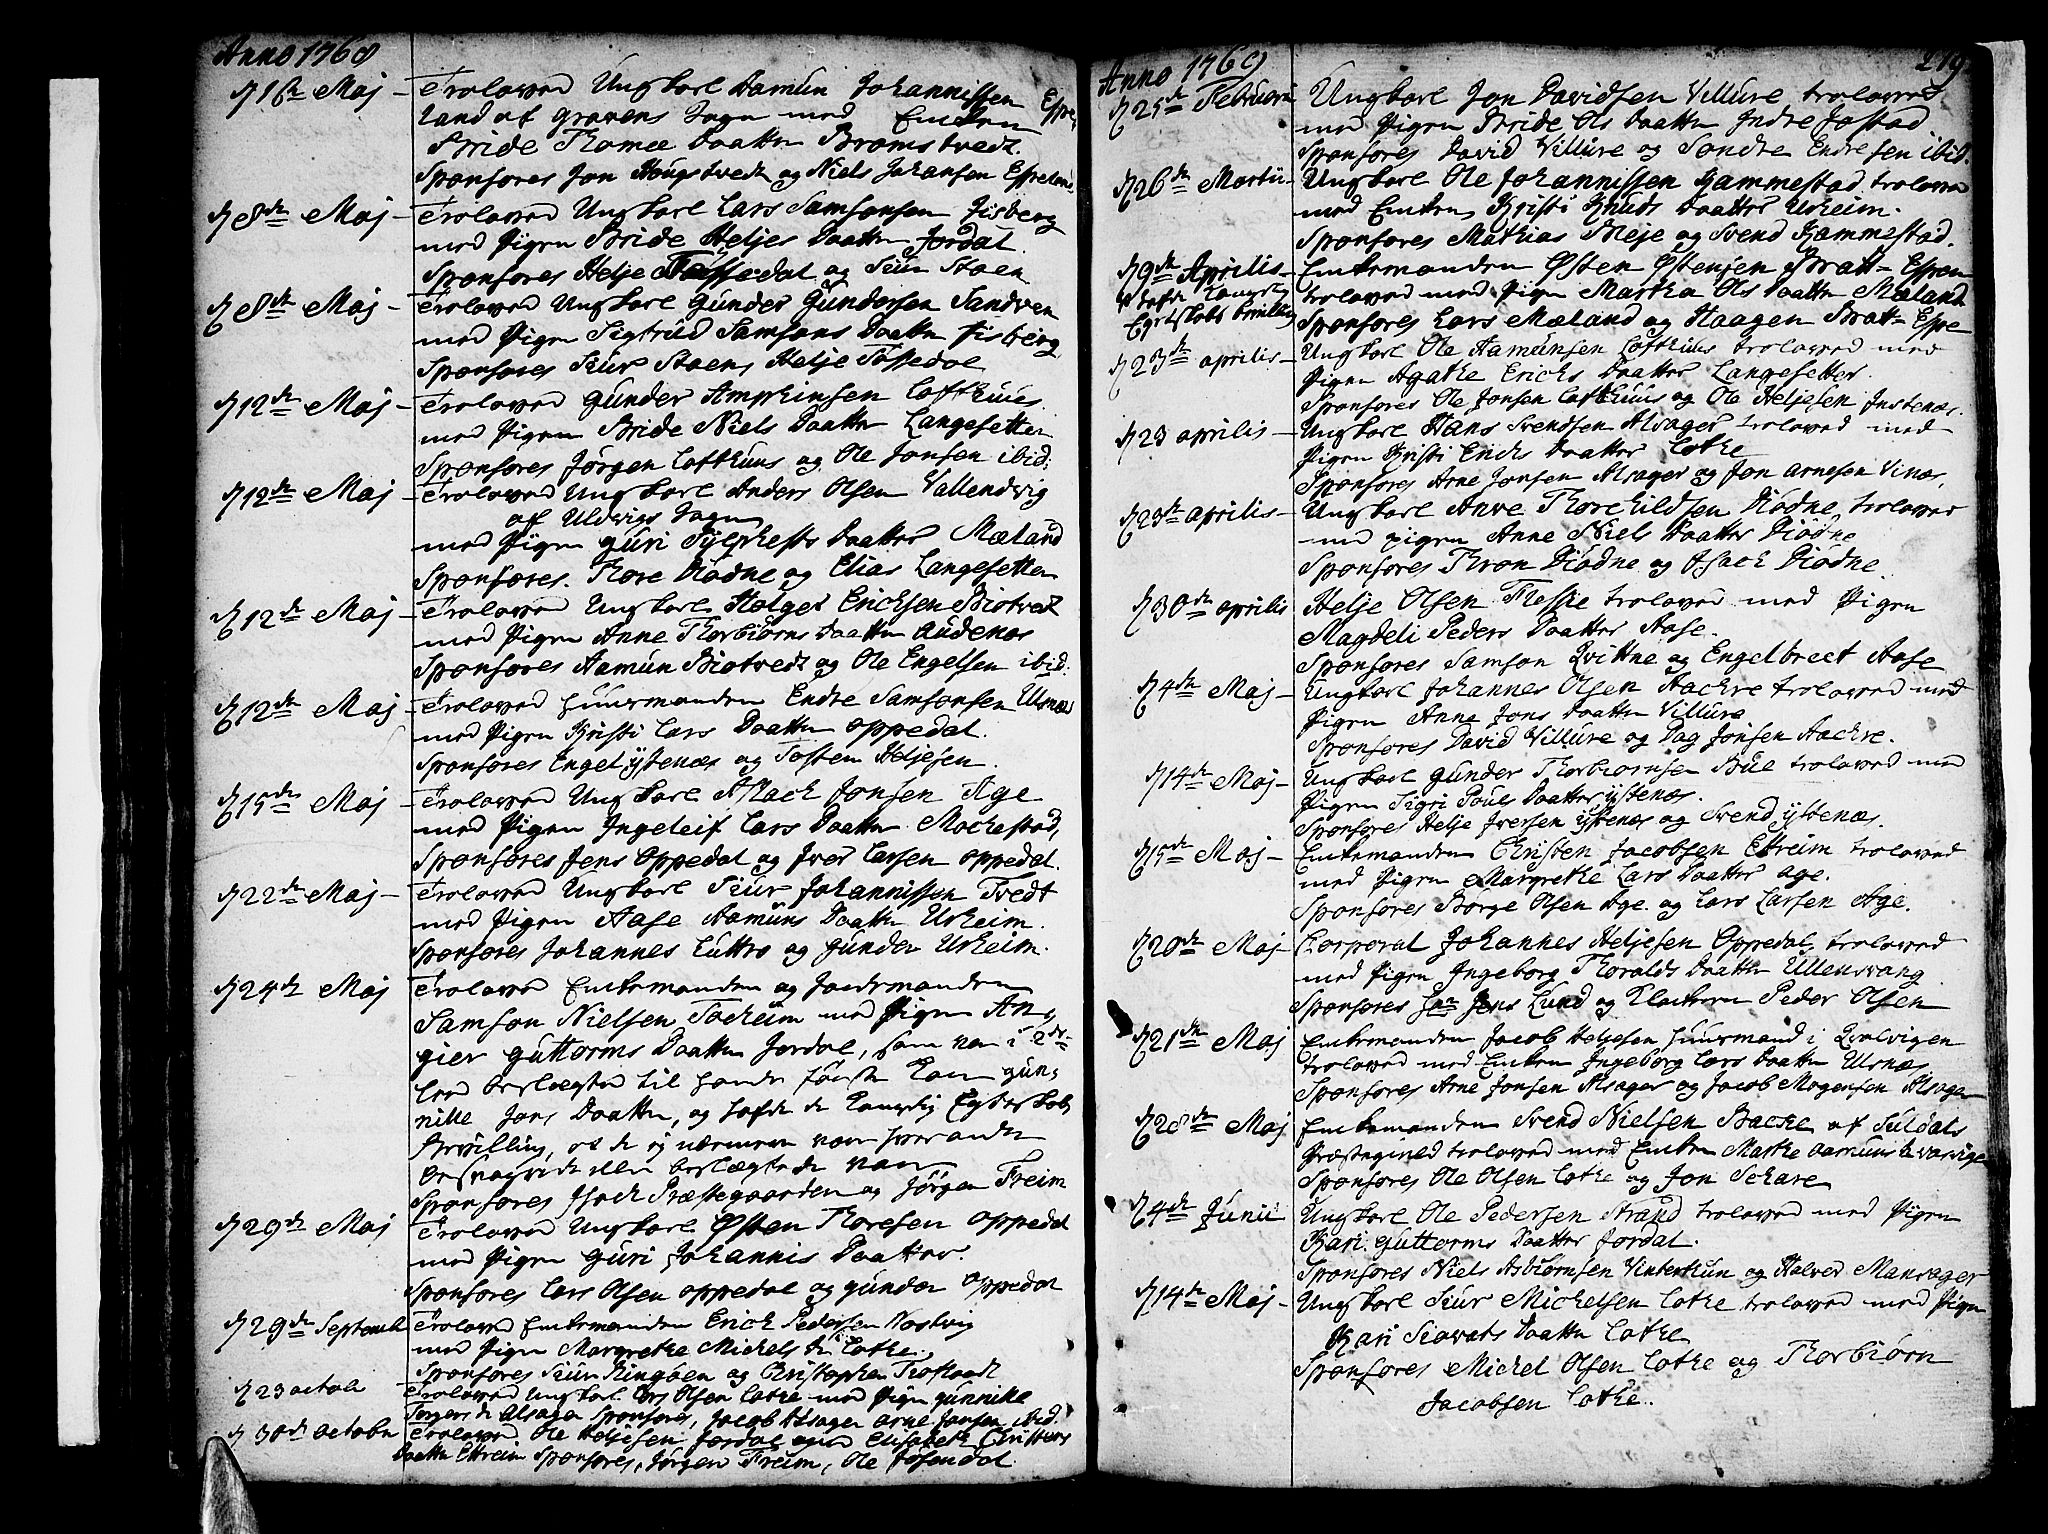 Anno 1768
d 16de Maj – Troloved Ungkarl Aamun Johannissen Espe-
land af Gravens Sogn med Enken
Bride Thomæ Daatter Bromstvedt.
Sponsores Jon Hougstvedt og Niels Johansen Espeland
d 8de Maj – Troloved Ungkarl Lars Samsonsen Jisberg
med Pigen Bride Heljes Daatter Jordal
Sponsores Helje Tossedal og Siur Staen
d 8de Maj – Trolovet Ungkarl Gunder Gundersen Sandven
med Pigen Sigtrud Samsons Daatter Jisberg
Sponsores Siur Staen, Helje Tossedal
d 12de Maj – Troloved Gunder Amphinsen Lofthuus
med Pigen Bride Niels Daatter Langesetter
Sponsores Jørgen Lofthuus og Ole Jonsen ibid:
d 12de Maj – Troloved Ungkarl Anders Olsen Vallendvig
af Uldvigs Sogn
med Pigen Guri Sylphests Daatter Mæland
Sponsores. Thore Diødne og Elias Langesetter
d 12de Maj – Trolovet Ungkarl Holger Ericksen Biotvedt
med Pigen Anne Thorbiørns Daatter Audenæs
Sponsores Aamun Biotvedt og Ole Engelsen ibid.
d 12de Maj – Trolovet Huusmanden Endre Samsonsen Ulsnæs
med Pigen Kristi Lars Daatter Oppedal.
Sponsores Engel Ystenæs og Tosten Heljesen.
d 15de Maj – Trolovet Ungkarl Aslack Jonsen Age
med Pigen Ingeleif Lars Daatter Mochestad,
Sponsores Jens Oppedal og Iver Larsen Oppedal.
d 22de Maj – Trolovet Ungkarl Siur Johannissen Tvedt
med Pigen Aase Aamuns Daatter Urheim.
Sponsores Johannes Luttro og Gunder Urheim.
d 24de Maj Trolovet Enkemanden og Gaardmanden
Samson Nielsen Tocheim med Pigen An-
gier Guttorms Daatter Jordal, som var i 2det
Leed beslægtet til hands første Kone Gun-
nille Jons Daatter, og hafde de Kongelig Egteskabs
Bevilling, at de ej nærmere vare hverandre
besvogrede eller beslægtede vare
Sponsores Isach Præstegaarden og Jørgen Freim
d 29de Maj Trolovet Ungkarl Østen Thoresen Oppedal
med Pigen Guri Johannis Daatter.
Sponsores Lars Olsen Oppedal og Gunder Oppedal
d 29de Septemb: Trolovet Enkemanden Erick Pedersen Nastvig
med Pigen Margrethe Michels Dr Lothe.
Sponsores Siur Ringøen og Christopher Trostvedt
d 23 octob: Trolovet Ungkarl. Lars Olsen Lothe med Pigen Gunnille
Torgers dr Alsager Sponsores, Jacob Alsager Arne Jonsen ibid.
d 30de octobr Trolovet Ole Heljesen Jordal Pigen Elisabeth Christens
Daatter Ettreim Sponsores, Jørgen Freim, Ole Josendal.
219.
Anno 1769
d 25de Februarii Ungkarl Jon Davidsen Villure trolovet
med Pigen Bride Ols Daatter Indre Jastad
Sponsores David Villure og Sondre Endresen ibid.
d 26de Martii – Ungkarl Ole Johannissen Hammestad trolovet
med Enken Kristi Knuds Daatter Urheim.
Sponsores Mathias Bleje og Svend Hammestad.
d 9de Aprilis – Enkemanden Østen Østensen Bratt-Espen
hafde Kongel: trolovet med Pigen Martha Ols Daatter Mæland
Egteskabs bevilling Sponsores Lars Mæland og Haagen Bratt-Espe
d 23de aprilis – Ungkarl Ole Aamunsen Lofthuus trolovet med
Pigen Agathe Ericks Daatter Langesetter.
Sponsores Ole Jonsen Lofthuus og Ole Heljesen Instenæs.
d 23 aprilis – Ungkarl Hans Svendsen Alsager trolovet med
Pigen Kristi Ericks Daatter Lothe
Sponsores Arne Jonsen Alsager og Jon Arnesen Vinæs.
d 23de aprilis – Ungkarl Anve Thorchildsen Diødne trolovet
med pigen Anne Niels Daatter Diødne
Sponsores Thron Diødne og Isach Diødne.
d 30de aprilis Helje Olsen Fleske trolovet med Pigen
Magdeli Peders Daatter Aase.
Sponsores Samson Qvittne og Engelbreet Aase
d 4de Maj – Ungkarl Johannes Olsen Aachre trolovet med
Pigen Anne Jons Daatter Villure
Sponsores David Villure og Dag Jonsen Aachre.
d 14de Maj – Ungkarl Gunder Thorbiornsen Bue trolovet med
Pigen Sigri Pouls Daatter Ystenæs.
Sponsores Helje Iversen Ystenæs og Svend Ystenæs.
d 15de Maj – Enkemanden Christen Jacobsen Ettreim trolovet
med Pigen Margrethe Lars Daatter Age.
Sponsores Børge Olsen Age. og Lars Larsen Age.
d 20de Maj Corporal Johannes Heljesen Oppedal, trolovet
med Pigen Ingeborg Thoralds Daatter Ullensvang
Sponsores Hr Jens Lund og Klockeren Peder Olsen
d 21de Maj Enkemanden Jacob Heljesen Huusmand i Qvalvigen
trolovet med Enken Ingeborg Lars Daatter Ulsnæs.
Sponsores Arne Jonsen Alsager og Jacob Mogensen Alsager
d 28de Maj Enkemanden Svend Nielsen Backe af Suldals
Præstegield trolovet med Enken Marthe Aamuns Qvarvige
Sponsores Ole Olsen Lothe og Jon Schare
d 4de Junii Ungkarl Ole Pedersen Strand trolovet med Pigen
Kari Guttorms Daatter Jordal.
Sponsores Niels Asbiørnsen Vinterthun og Halver Mansager
d 14de Maj – Ungkarl Siur Michelsen Lothe trolovet med Pigen
Kari Siovats Daatter Lothe
Sponsores Michel Olsen Lothe og Thorbiørn
Jacobsen Lothe.